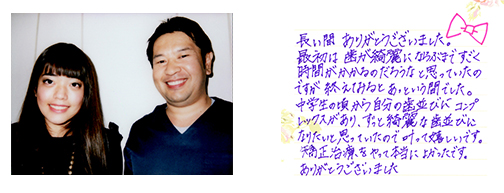 長い間 ありがとうございました。
最初は 歯が綺麗にならぶまですごく
時間がかかるのだろうなと思っていたの
ですが 終えてみるとあっという間でした。
中学生の頃から自分の歯並びにコンプ
レックスがあり、ずっと綺麗な歯並びに
なりたいと思っていたので叶って嬉しいです。
矯正治療をやって本当に よかったです。
ありがとうございました